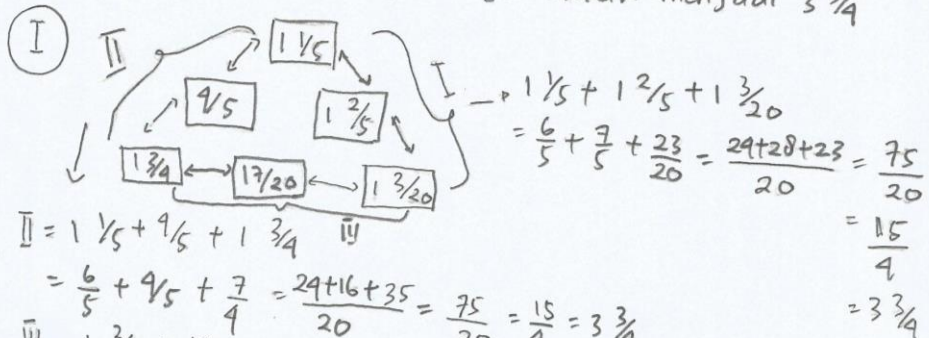 menjadi 3 3/4
I
II
1 1/5
4/5
1 2/5
1 3/4
17/20
1 3/20
III
I → 1 1/5 + 1 2/5 + 1 3/20
= 6/5 + 7/5 + 23/20 = 24+28+23/20 = 75/20
= 15/4
= 3 3/4
II = 1 1/5 + 4/5 + 1 3/4
= 6/5 + 4/5 + 7/4 = 24+16+35/20 = 75/20 = 15/4 = 3 3/4
III